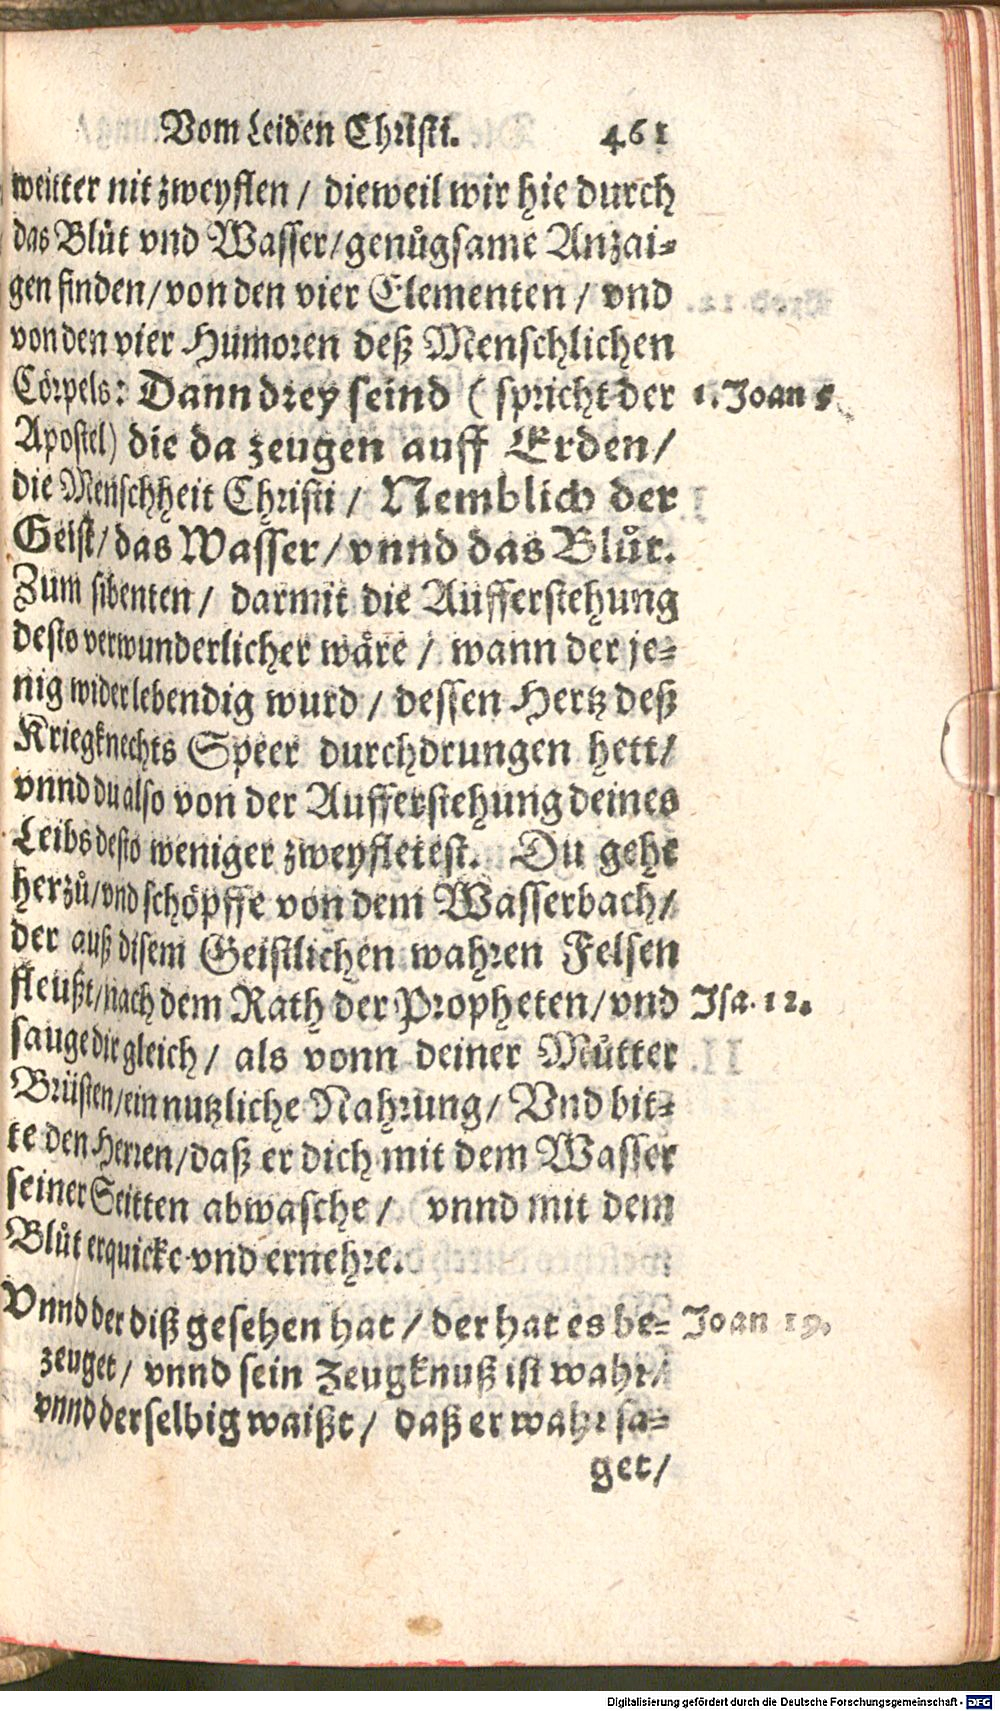 Vom Leiden Christi. 461
weitter nit zweyflen / dieweil wir hie durch
das Blůt vnd Wasser / genůgsame Anzai-
gen finden / von den vier Elementen / vnd
von den vier Humoren deß Menschlichen
Cörpels: Dann drey seind ( spricht der 1. Joan 5.
Apostel) die da zeugen auff Erden /
die Menschheit Christi / Nemblich der
Geist / das Wasser / vnnd das Blůt.
Zum sibenten / darmit die Aufferstehung
desto verwunderlicher wäre / wann der je-
nig wider lebendig wurd / dessen Hertz deß
Kriegknechts Speer durchdrungen hett /
vnnd du also von der Aufferstehung deines
Leibs desto weniger zweyfletest. Du gehe
herzů / vnd schöpffe von dem Wasserbach /
der auß disem Geistlichen wahren Felsen
fleußt / nach dem Rath der Propheten / vnd Isa. 12.
sauge dir gleich / als vonn deiner Můtter
Brüsten / ein nutzliche Nahrung / Vnd bit-
te den Herren / daß er dich mit dem Wasser
seiner Seitten abwasche / vnnd mit dem
Blůt erquicke vnd ernehre.
Vnnd der diß gesehen hat / der hat es be- Joan 19.
zeuget / vnnd sein Zeugknuß ist wahr /
vnnd derselbig waißt / daß er wahr sa-
get /
Digitalisierung gefördert durch die Deutsche Forschungsgemeinschaft - DFG